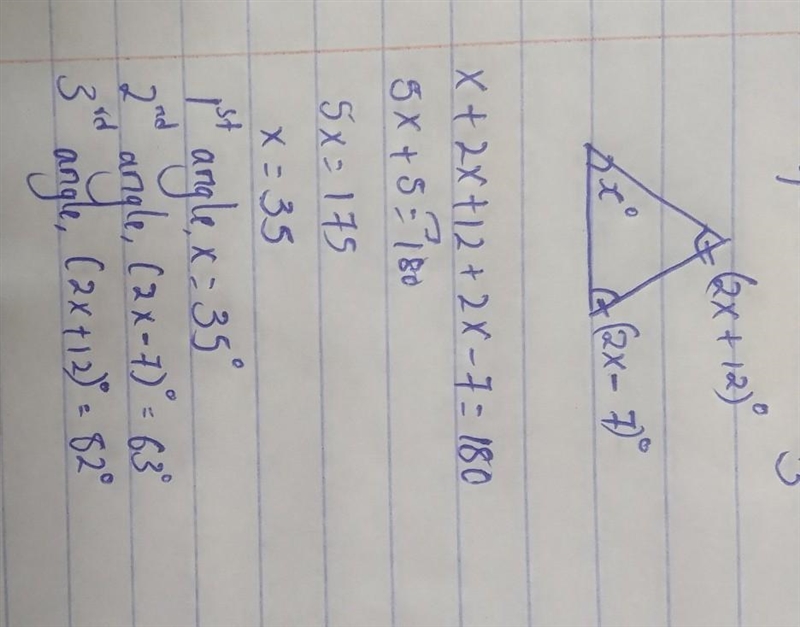 (2x + 12)°
x°
(2x - 7)°
x + 2x + 12 + 2x - 7 = 180
5x + 5 = 180
5x = 175
x = 35
1st angle, x = 35°
2nd angle, (2x - 7)° = 63°
3rd angle, (2x + 12)° = 82°